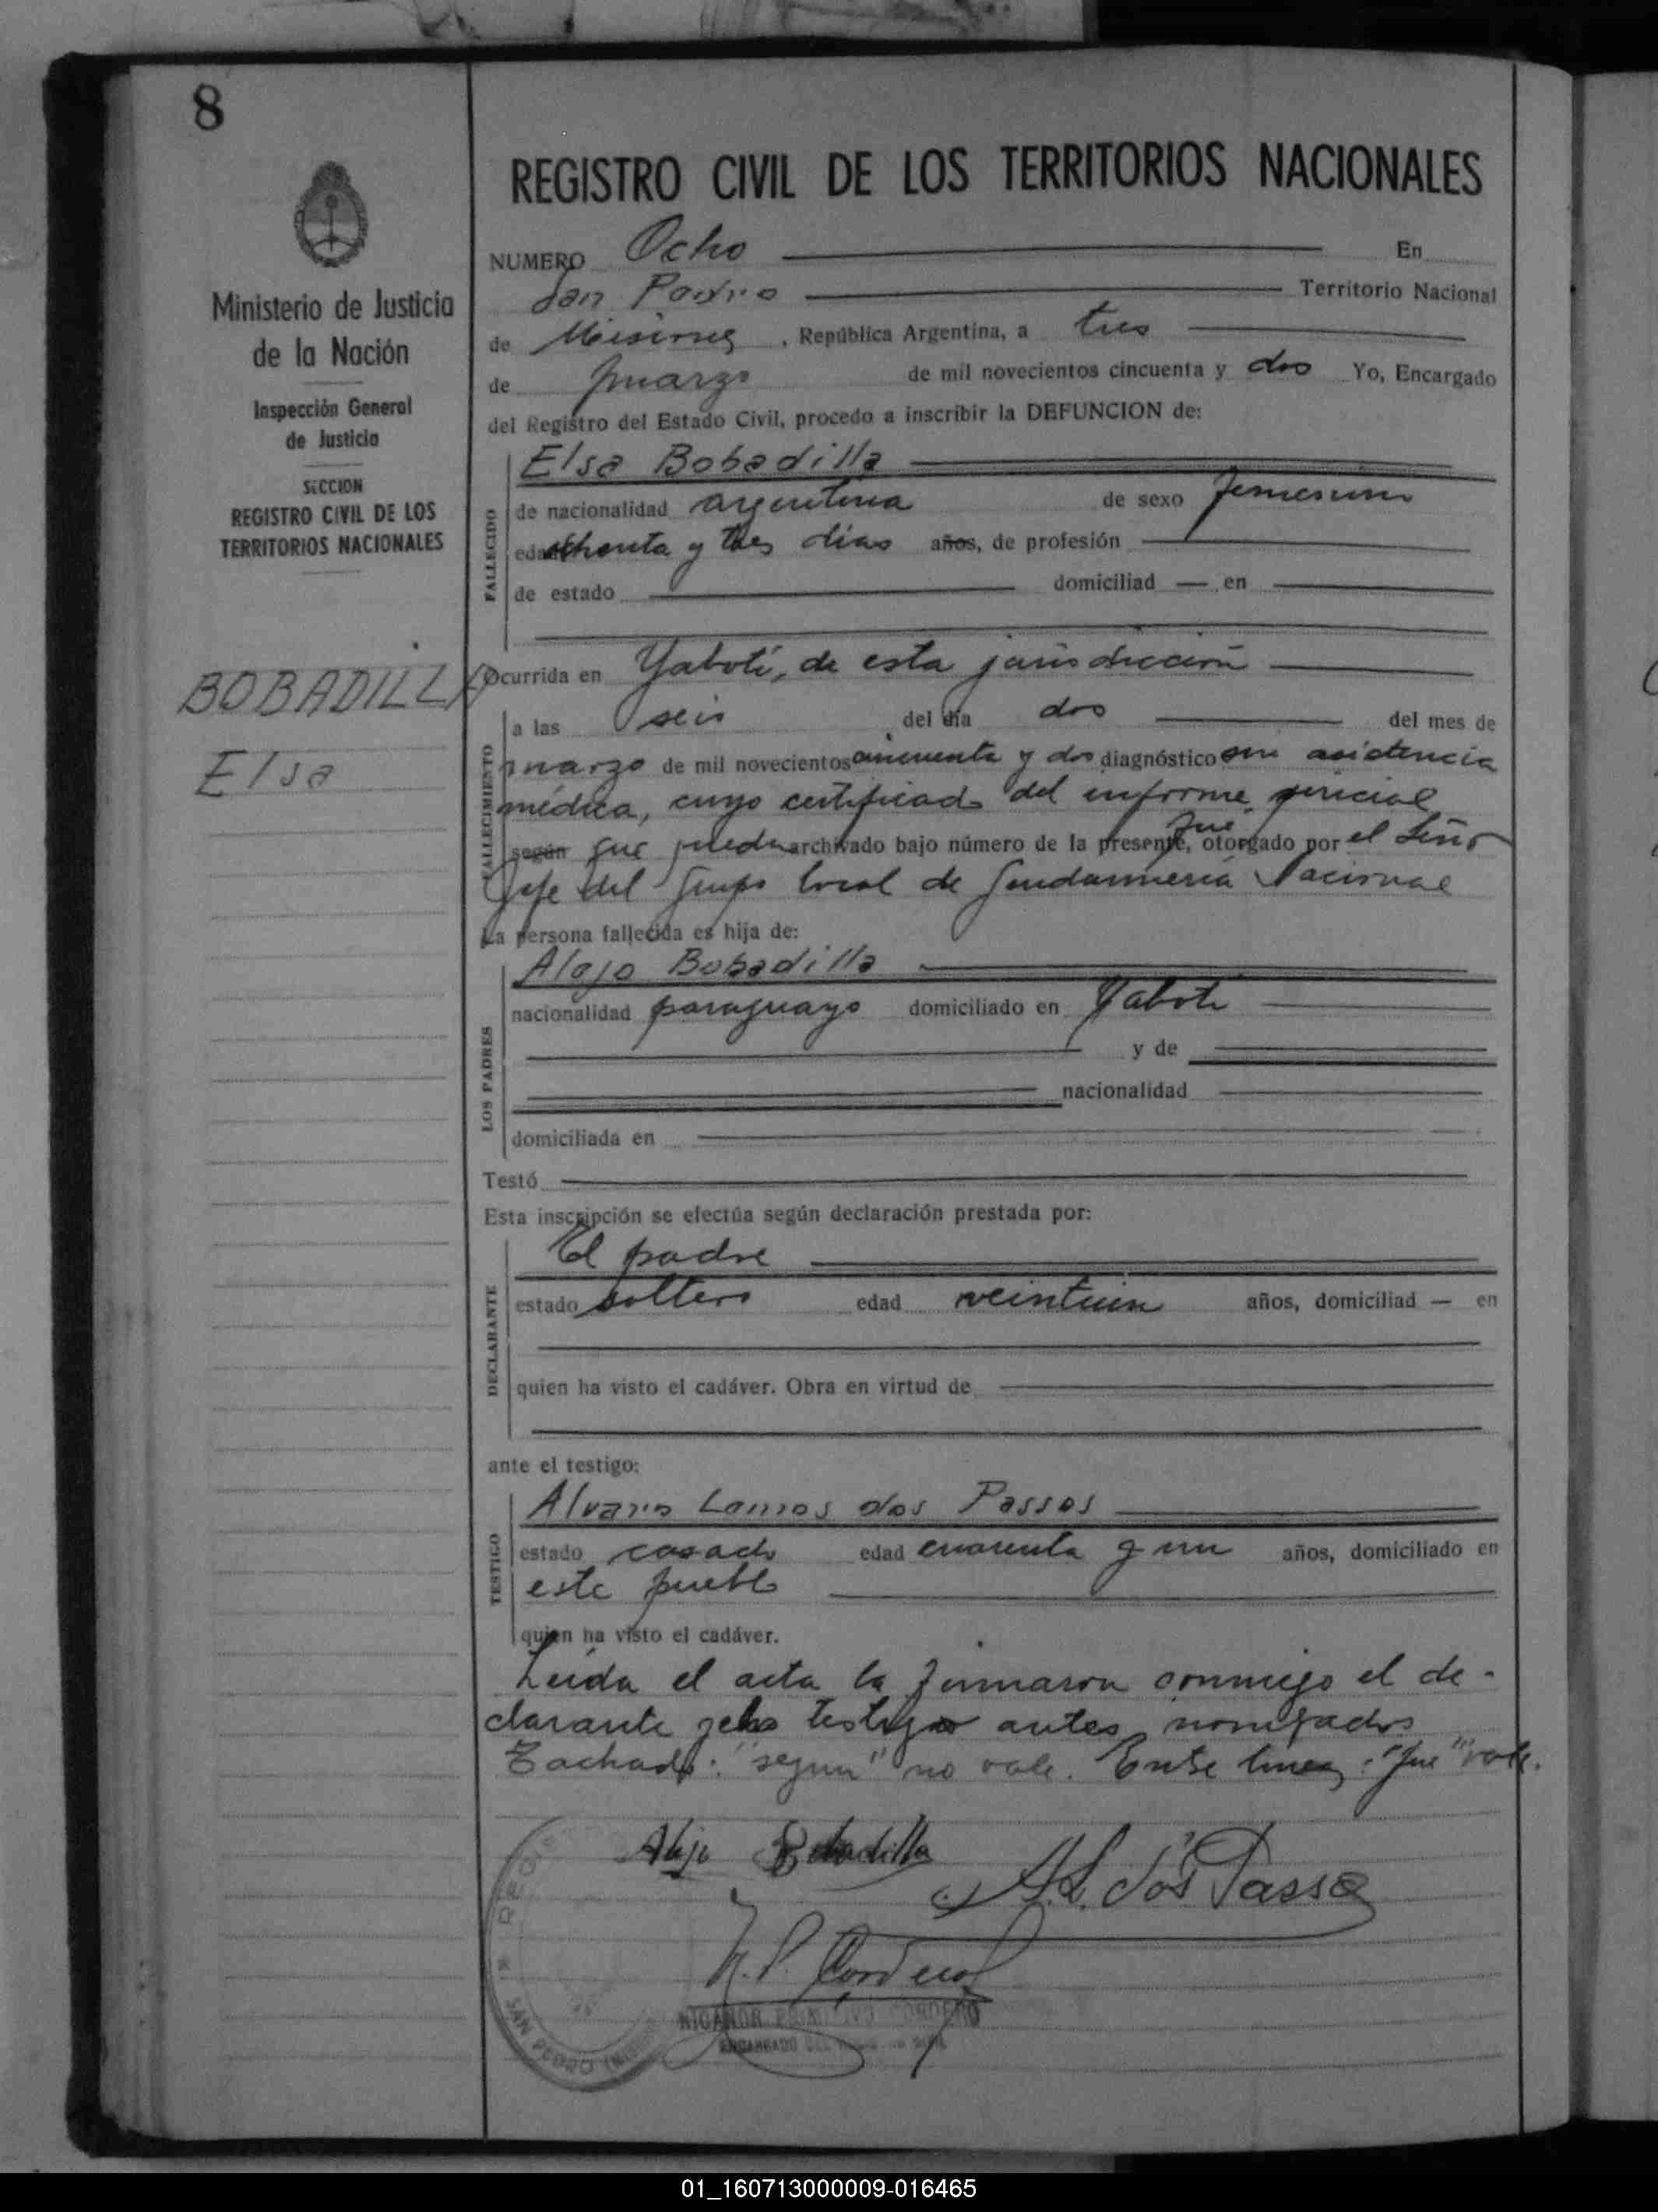 8
Ministerio de Justicia
de la Nación
Inspección General
de Justicia
SECCION
REGISTRO CIVIL DE LOS
TERRITORIOS NACIONALES
BOBADILLA
Elsa
REGISTRO CIVIL DE LOS TERRITORIOS NACIONALES
NUMERO Ocho En
San Pedro Territorio Nacional
de Misiones, República Argentina, a tres
de marzo de mil novecientos cincuenta y dos Yo, Encargado
del Registro del Estado Civil, procedo a inscribir la DEFUNCION de:
FALLECIDO
Elsa Bobadilla
de nacionalidad argentina de sexo femenino
edad ochenta y tres días años, de profesión
de estado domiciliad — en
Ocurrida en Yabotí, de esta jurisdicción
FALLECIMIENTO
a las seis del día dos del mes de
marzo de mil novecientos cincuenta y dos diagnóstico sin asistencia
médica, cuyo certificado del informe pericial
fue
según que archivado bajo número de la presente, otorgado por el Señor
Jefe del Grupo local de Gendarmería Nacional
La persona fallecida es hija de:
LOS PADRES
Alejo Bobadilla
nacionalidad paraguayo domiciliado en Yabotí
y de
nacionalidad
domiciliada en
Testó
Esta inscripción se efectúa según declaración prestada por:
DECLARANTE
El padre
estado soltero edad veintiun años, domiciliad — en
quien ha visto el cadáver. Obra en virtud de
ante el testigo:
TESTIGO
Alvaro Lemos dos Passos
estado casado edad cuarenta y un años, domiciliado en
este pueblo
quien ha visto el cadáver.
Leída el acta la firmaron conmigo el de-
clarante y el testigo antes nombrados
Tachado: "según" no vale. Entre línea: "fue" vale.
Alejo Bobadilla
A. L. dos Passos
N. P. Cordero
NICANOR PRIMITIVO CORDERO
ENCARGADO DEL
SAN PEDRO
01_160713000009-016465